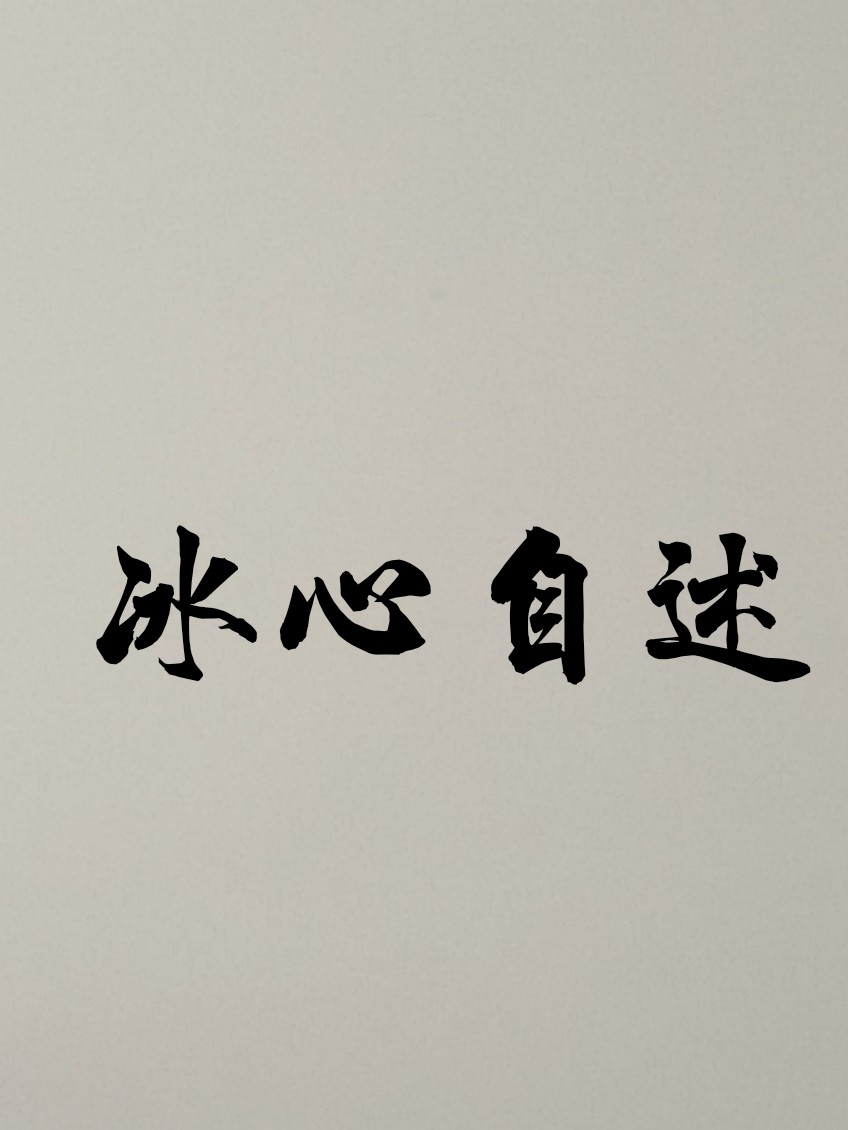 冰心自述